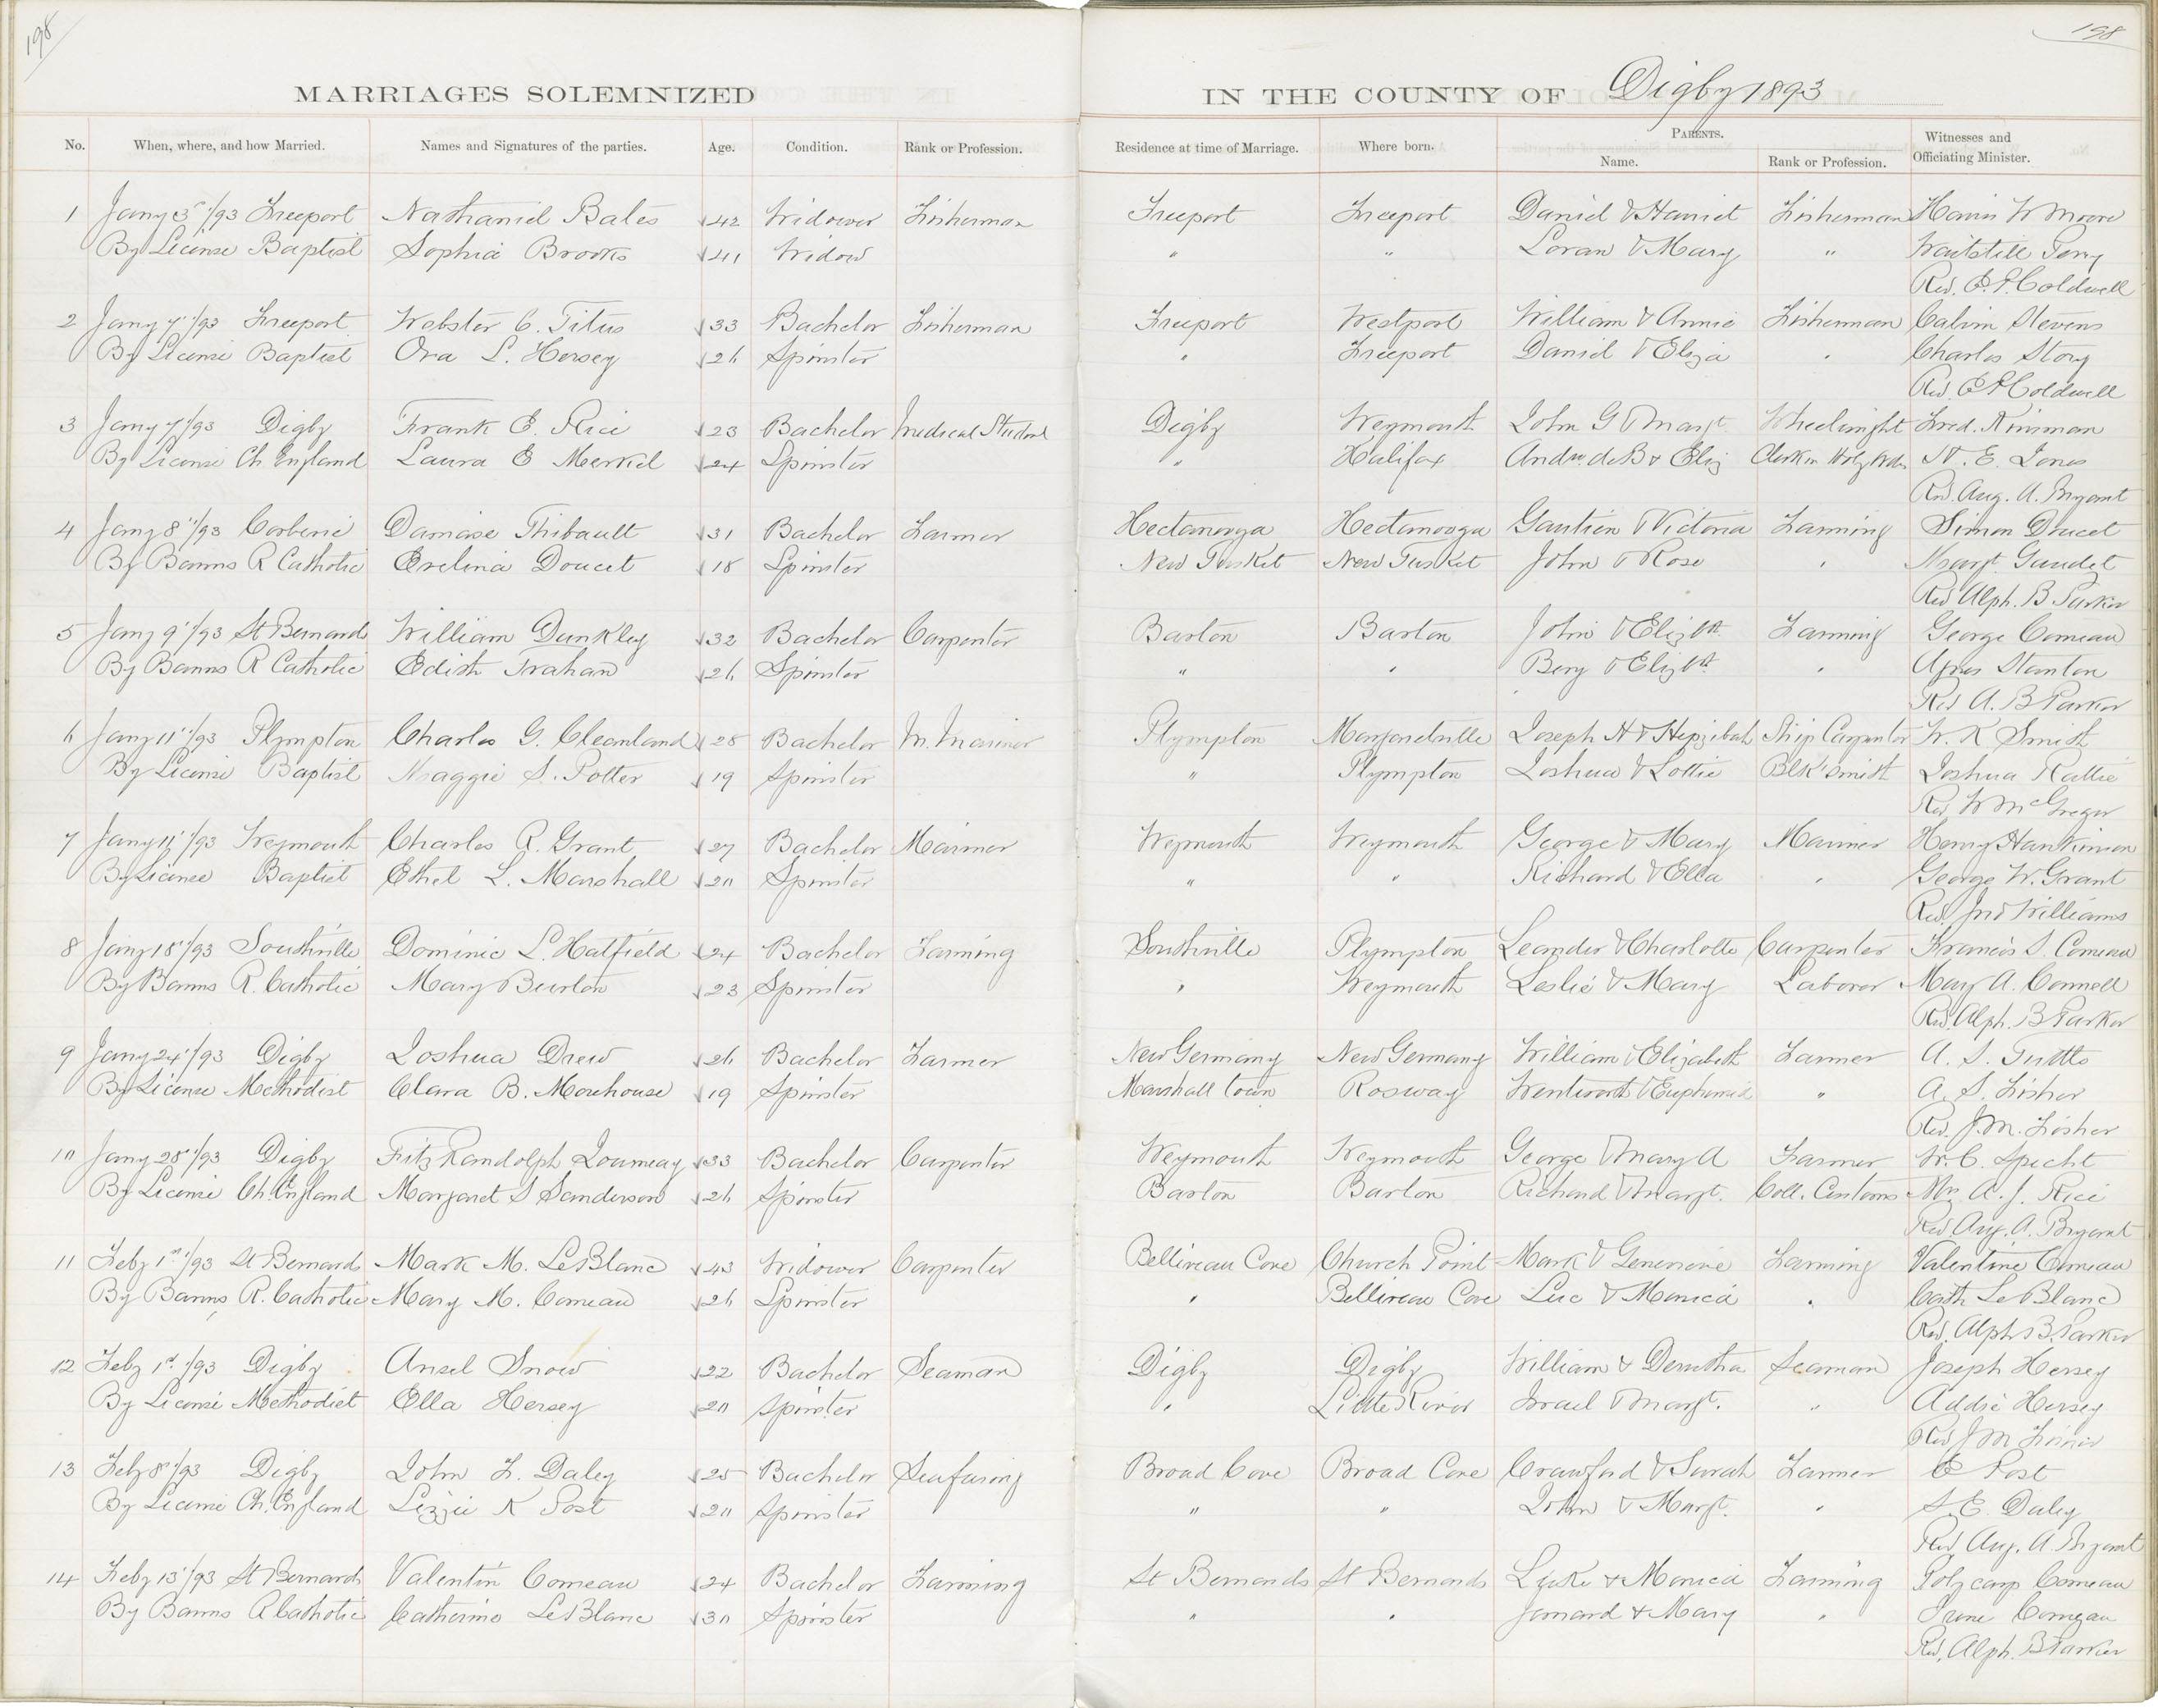 198
198
MARRIAGES SOLEMNIZED IN THE COUNTY OF Digby 1893
No. When, where, and how Married. Names and Signatures of the parties. Age. Condition. Rank or Profession. Residence at time of Marriage. Where born. PARENTS. Name. Rank or Profession. Witnesses and Officiating Minister.
1 Jany 3rd/93 Freeport Nathaniel Bates 42 Widower Fisherman Freeport Freeport Daniel & Harriet Fisherman W Moore
By License Baptist Sophia Brooks 41 Widow " " Loran & Mary " Waitstill Perry
Rev. E. P. Coldwell
2 Jany 7"/93 Freeport Webster C. Titus 33 Bachelor Fisherman Freeport Westport William & Annie Fisherman Calvin Stevens
By License Baptist Ora L. Hersey 26 Spinster " Freeport Daniel & Eliza " Charles Story
Rev. E P Coldwell
3 Jany 7"/93 Digby Frank E. Rice 23 Bachelor Medical Student Digby Weymouth John G & Margt. Wheelwright Fred. Kinsman
By License Ch England Laura E Merkel 24 Spinster " Halifax Andw. deB & Eliz Clerk in Holy Orders W. E. Jones
Rev. Aug. A. Bryant
4 Jany 8"/93 Corberie Damase Thibault 31 Bachelor Farmer Hectanooga Hectanooga & Victoria Farming Simon Doucet
By Banns R Catholic Evelina Doucet 18 Spinster New Tusket New Tusket John & Rose " Margt. Gaudet
Rev Alph. B Parker
5 Jany 9"/93 St Bernards William Dunkley 32 Bachelor Carpenter Barton Barton John & Elizbth Farming George Comeau
By Banns R Catholic Edith Trahan 26 Spinster " " Benj & Elizbth " Agnes Stanton
Rev A. B Parker
6 Jany 11"/93 Plympton Charles G. Cleaveland 28 Bachelor M. Mariner Plympton Margaretville Joseph H & Hepzibah Ship Carpenter W. K Smith
By License Baptist Maggie S. Potter 19 Spinster " Plympton Joshua & Lottie Blk'smith Joshua
Rev W McGregor
7 Jany 11"/93 Weymouth Charles R. Grant 27 Bachelor Mariner Weymouth Weymouth George & Mary Mariner Henry Hankinson
By License Baptist Ethel L. Marshall 20 Spinster " " Richard & Ella " George W. Grant
Rev. Jno Williams
8 Jany 18"/93 Southville Dominic L. Hatfield 24 Bachelor Farming Southville Plympton Leander & Charlotte Carpenter Francis S. Comeau
By Banns R. Catholic Mary Burton 23 Spinster " Weymouth Leslie & Mary Laborer Mary A. Connell
Rev. Alph. B Parker
9 Jany 24"/93 Digby Joshua Drew 26 Bachelor Farmer New Germany New Germany William & Elizabeth Farmer A. S. Tuttle
By License Methodist Clara B. Morehouse 19 Spinster Marshall Town Rosway Wentworth & Euphemia " A. S. Fisher
Rev. J. M. Fisher
10 Jany 28"/93 Digby Fitz Randolph Journeay 33 Bachelor Carpenter Weymouth Weymouth George & Mary A Farmer W. C. Specht
By License Ch. England Margaret S Sanderson 26 Spinster Barton Barton Richard & Margt. Coll. Customs Mrs A. J. Rice
Rev Aug. A. Bryant
11 Feby 1st/93 St Bernard Mark M. LeBlanc 43 Widower Carpenter Belliveau Cove Church Point Mark & Genevieve Farming Valentine Comeau
By Banns R. Catholic Mary M. Comeau 26 Spinster " Belliveau Cove Luc & Monica " Cath LeBlanc
Rev. Alph. B. Parker
12 Feby 1st/93 Digby Ansel Snow 22 Bachelor Seaman Digby Digby William & Seaman Joseph Hersey
By License Methodist Ella Hersey 20 Spinster " Little River Israel & Margt. " Addie Hersey
Rev J M Fisher
13 Feby 8"/93 Digby John F. Daley 25 Bachelor Seafaring Broad Cove Broad Cove Crawford & Sarah Farmer E Post
By License Ch. England Lizzie K Post 20 Spinster " " John & Margt. " S. E. Daley
Rev Aug. A Bryant
14 Feby 13"/93 St Bernards Valentin Comeau 24 Bachelor Farming St Bernards St Bernards Luke & Monica Farming Polycarp Comeau
By Banns R Catholic Catherine LeBlanc 30 Spinster " " & Mary " Irene Comeau
Rev. Alph. B Parker